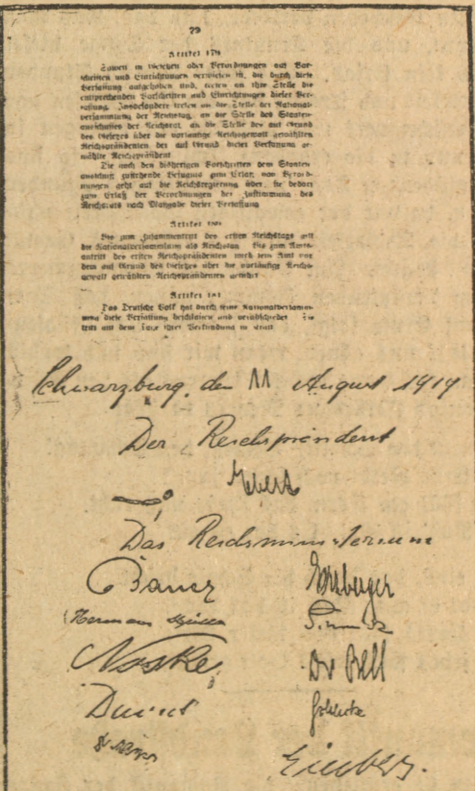 Artikel 179
Soweit in Gesetzen oder Verordnungen auf Vor-
schriften und Einrichtungen verwiesen ist, die durch diese
Verfassung aufgehoben sind, treten an ihre Stelle die
entsprechenden Vorschriften und Einrichtungen dieser Ver-
fassung. Insbesondere treten an die Stelle der National-
versammlung der Reichstag, an die Stelle des Staaten-
ausschusses der Reichsrat, an die Stelle des auf Grund
des Gesetzes über die vorläufige Reichsgewalt gewählten
Reichspräsidenten der auf Grund dieser Verfassung ge-
wählte Reichspräsident.
Die nach den bisherigen Vorschriften dem Staaten-
ausschuß zustehende Befugnis zum Erlaß von Verord-
nungen geht auf die Reichsregierung über, sie bedarf
zum Erlaß der Verordnungen der Zustimmung des
Reichsrats nach Maßgabe dieser Verfassung
Artikel 180
Bis zum Zusammentritt des ersten Reichstags gilt
die Nationalversammlung als Reichstag. Bis zum Amts-
antritt des ersten Reichspräsidenten wird sein Amt von
dem auf Grund des Gesetzes über die vorläufige Reichs-
gewalt gewählten Reichspräsidenten geführt
Artikel 181
Das Deutsche Volk hat durch seine Nationalversamm-
lung diese Verfassung beschlossen und verabschiedet. Sie
tritt mit dem Tage ihrer Verkündung in Kraft
Schwarzburg, den 11 August 1919
Der Reichspräsident
Ebert
Das Reichsministerium
Bauer Erzberger
Hermann Müller
Noske Dr Bell
David Schlicke